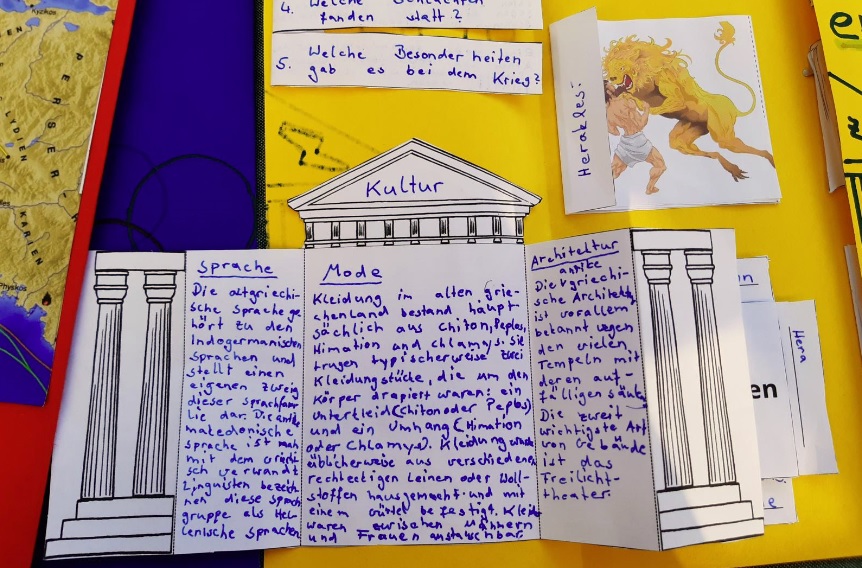 4. Welche Schlachten
fanden statt?
5. Welche Besonderheiten
gab es bei dem Krieg?
Herakles:
PERSER
LYDIEN
KARIEN
Kultur
Sprache
Die altgriechi-
sche Sprache ge
hört zu den
Indogermanischen
Sprachen und
stellt einen
eigenen Zweig
dieser Sprachfami
lie dar. Die antike
makedonische
Sprache ist nah
mit dem griechi
sch verwandt
Linguisten bezeich
nen diese Sprach
gruppe als Hel-
lenische Sprachen
Mode
Kleidung im alten Grie-
chenland bestand haupt-
sächlich aus Chiton, Peplos,
Himation und Chlamys. Sie
trugen typischerweise zwei
Kleidungsstücke, die um den
Körper drapiert waren: ein
Unterkleid (chiton oder Peplos)
und ein Umhang (Himation
oder Chlamys). Kleidung wurde
üblicherweise aus verschiedenen
rechteckigen Leinen oder Woll-
stoffen hausgemacht und mit
einem Gürtel befestigt. Kleid
waren zwischen Männern
und Frauen austauschbar.
Architektur
antike
Die griechi-
sche Architektur
ist vorallem
bekannt wegen
den vielen
Tempeln mit
deren auf-
fälligen Säulen
Die zweit
wichtigste Art
von Gebäude
ist das
Freilicht-
theater.
in
Hera
en
e